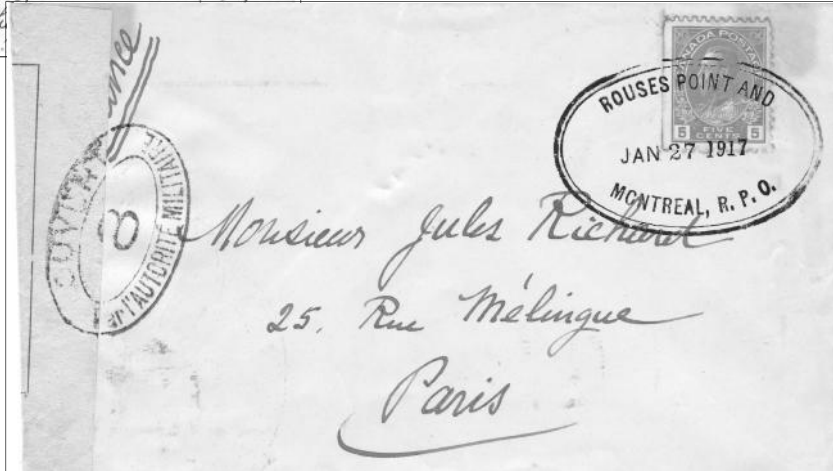 CANADA POSTAGE
5 FIVE CENTS 5
ROUSES POINT AND
JAN 27 1917
MONTREAL, R. P. O.
OUVERT
par l'AUTORITÉ MILITAIRE
Monsieur Jules Richard
25. Rue Mélingue
Paris